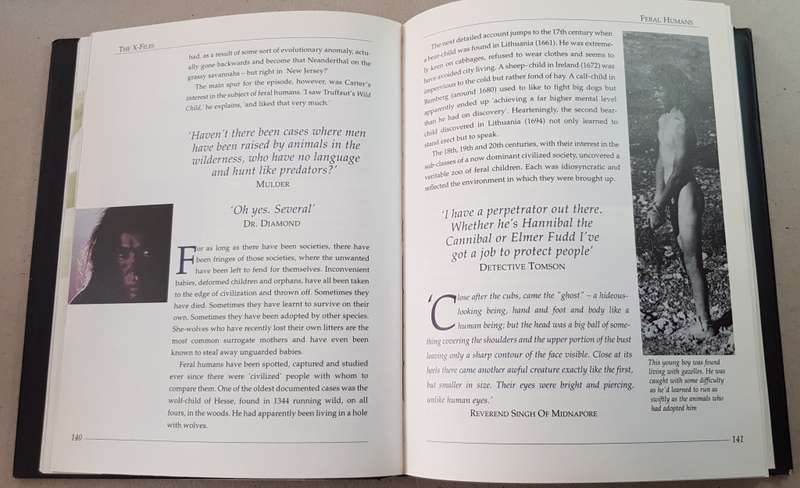 THE X-FILES
had, as a result of some sort of evolutionary anomaly, actu-
ally gone backwards and become that Neanderthal on the
grassy savannahs – but right in New Jersey?'
The main spur for the episode, however, was Carter's
interest in the subject of feral humans. 'I saw Truffaut's Wild
Child,' he explains, 'and liked that very much.'
'Haven't there been cases where men
have been raised by animals in the
wilderness, who have no language
and hunt like predators?'
MULDER
'Oh yes. Several'
DR. DIAMOND
For as long as there have been societies, there have
been fringes of those societies, where the unwanted
have been left to fend for themselves. Inconvenient
babies, deformed children and orphans, have all been taken
to the edge of civilization and thrown off. Sometimes they
have died. Sometimes they have learnt to survive on their
own. Sometimes they have been adopted by other species.
She-wolves who have recently lost their own litters are the
most common surrogate mothers and have even been
known to steal away unguarded babies.
Feral humans have been spotted, captured and studied
ever since there were 'civilized' people with whom to
compare them. One of the oldest documented cases was the
wolf-child of Hesse, found in 1344 running wild, on all
fours, in the woods. He had apparently been living in a hole
with wolves.
140
FERAL HUMANS
The next detailed account jumps to the 17th century when
a bear-child was found in Lithuania (1661). He was extreme-
ly keen on cabbages, refused to wear clothes and seems to
have avoided city living. A sheep-child in Ireland (1672) was
impervious to the cold but rather fond of hay. A calf-child in
Bamberg (around 1680) used to like to fight big dogs but
apparently ended up 'achieving a far higher mental level
than he had on discovery'. Hearteningly, the second bear-
child discovered in Lithuania (1694) not only learned to
stand erect but to speak.
The 18th, 19th and 20th centuries, with their interest in the
sub-classes of a now dominant civilized society, uncovered a
veritable zoo of feral children. Each was idiosyncratic and
reflected the environment in which they were brought up.
'I have a perpetrator out there.
Whether he's Hannibal the
Cannibal or Elmer Fudd I've
got a job to protect people'
DETECTIVE TOMSON
'Close after the cubs, came the "ghost" – a hideous-
looking being, hand and foot and body like a
human being; but the head was a big ball of some-
thing covering the shoulders and the upper portion of the bust
leaving only a sharp contour of the face visible. Close at its
heels there came another awful creature exactly like the first,
but smaller in size. Their eyes were bright and piercing,
unlike human eyes.'
REVEREND SINGH OF MIDNAPORE
This young boy was found
living with gazelles. He was
caught with some difficulty
as he'd learned to run as
swiftly as the animals who
had adopted him
141